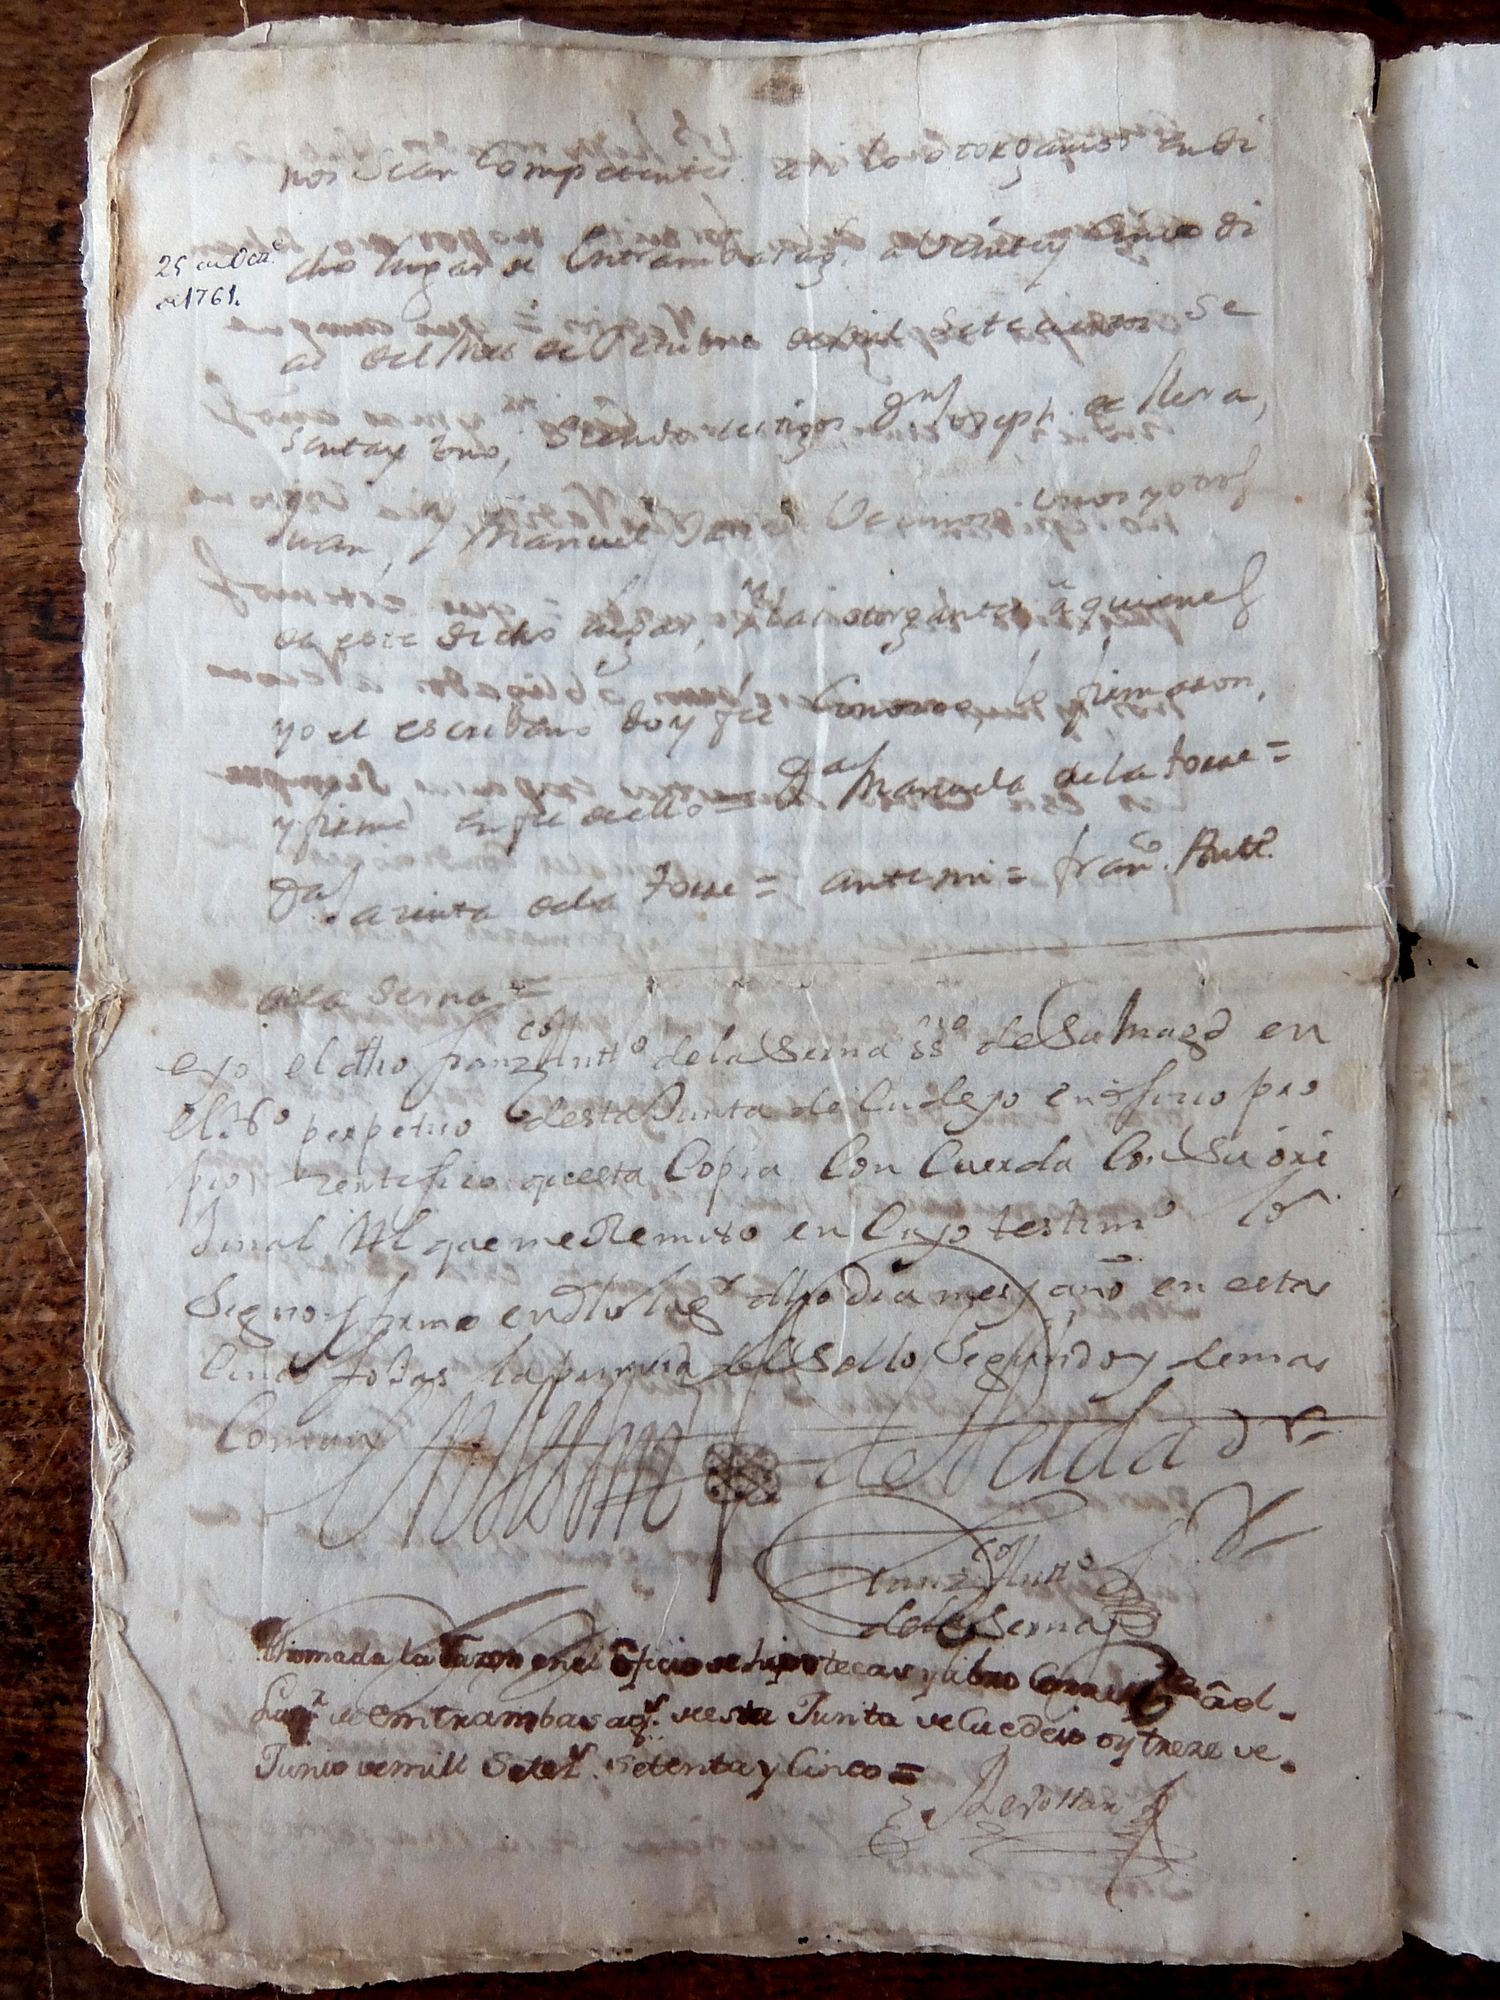 nos sean Competentes asi lo otorgamos en di
25 de Octe.
de 1761.
cho lugar de Entrambasags. a Veinte y Cinco di
as del mes de Octubre de mil Setecientos Se
senta y Uno, Siendo testigos Dn. Joseph de Llera,
Juan, y Manuel Vecinos Unos y otros
de este dicho lugar, y las otorgantes â quienes
yo el escribano doy fee Conozco lo firmaron,
y firmé en fee de ello = Da. Manuela de la torre =
Da. Jacinta de la torre = ante mi = Franco. Antto.
de la Serna =
e yo el dho Franzco Antto de la Serna SSno de Su Magd en
el No perpetuo desta Junta de Cudeyo en ofizio pro
pio zertifico questa Copia Con Cuerda Con Su ori
Jinal Al que me Remito en Cuyo testimo lo
Signo y firmo en dho lugr dho dia mes y año en estas
Cinco fojas la primera del Sello Segundo y demas
Comun
de Verdad
Franzco Antto
de la Serna
Thomada la razon en el ôficio de hipotecas y libro âol
Lugr. de entrambasags. de esta Junta de Cudeio oy treze de
Junio de mill Setezs. Setenta y Cinco =
Revollar